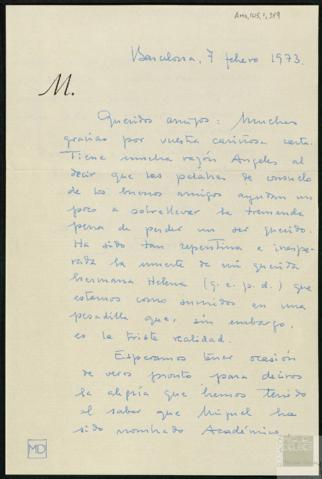 Barcelona, 7 febrero 1973.
M.
Queridos amigos: Muchas
gracias por vuestra cariñosa carta.
Tiene mucha razón Angeles al
decir que las palabras de consuelo
de los buenos amigos ayudan un
poco a sobrellevar la tremenda
pena de perder un ser querido.
Ha sido tan repentina e inespe-
rada la muerte de mi querida
hermana Helena (q.e.p.d.) que
estamos como sumidos en una
pesadilla que, sin embargo,
es la triste realidad.
Esperamos tener ocasión
de veros pronto para deciros
la alegría que hemos tenido
al saber que Miguel ha
sido nombrado Académico
MD